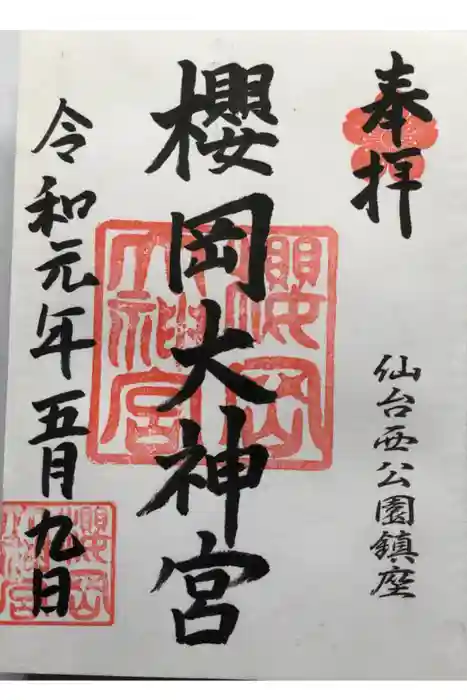 奉拝
仙台西公園鎮座
櫻岡大神宮
櫻岡大神宮
令和元年五月九日